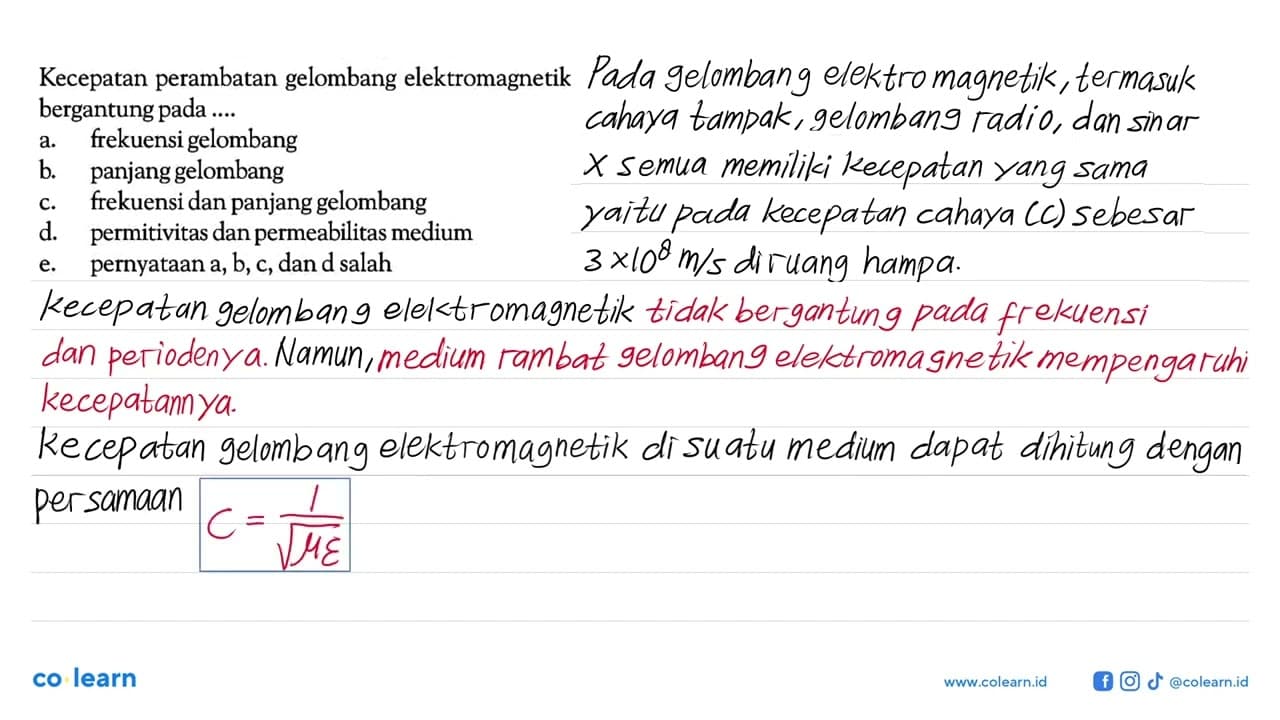 Kecepatan perambatan gelombang elektromagnetik
bergantung pada ....
a. frekuensi gelombang
b. panjang gelombang
c. frekuensi dan panjang gelombang
d. permitivitas dan permeabilitas medium
e. pernyataan a, b, c, dan d salah
Pada gelombang elektromagnetik, termasuk
cahaya tampak, gelombang radio, dan sinar
X semua memiliki kecepatan yang sama
yaitu pada kecepatan cahaya (c) sebesar
3 × 10⁸ m/s diruang hampa.
kecepatan gelombang elektromagnetik tidak bergantung pada frekuensi
dan periodenya. Namun, medium rambat gelombang elektromagnetik mempengaruhi
kecepatannya.
kecepatan gelombang elektromagnetik di suatu medium dapat dihitung dengan
persamaan C = 1/√με
co learn
www.colearn.id @colearn.id